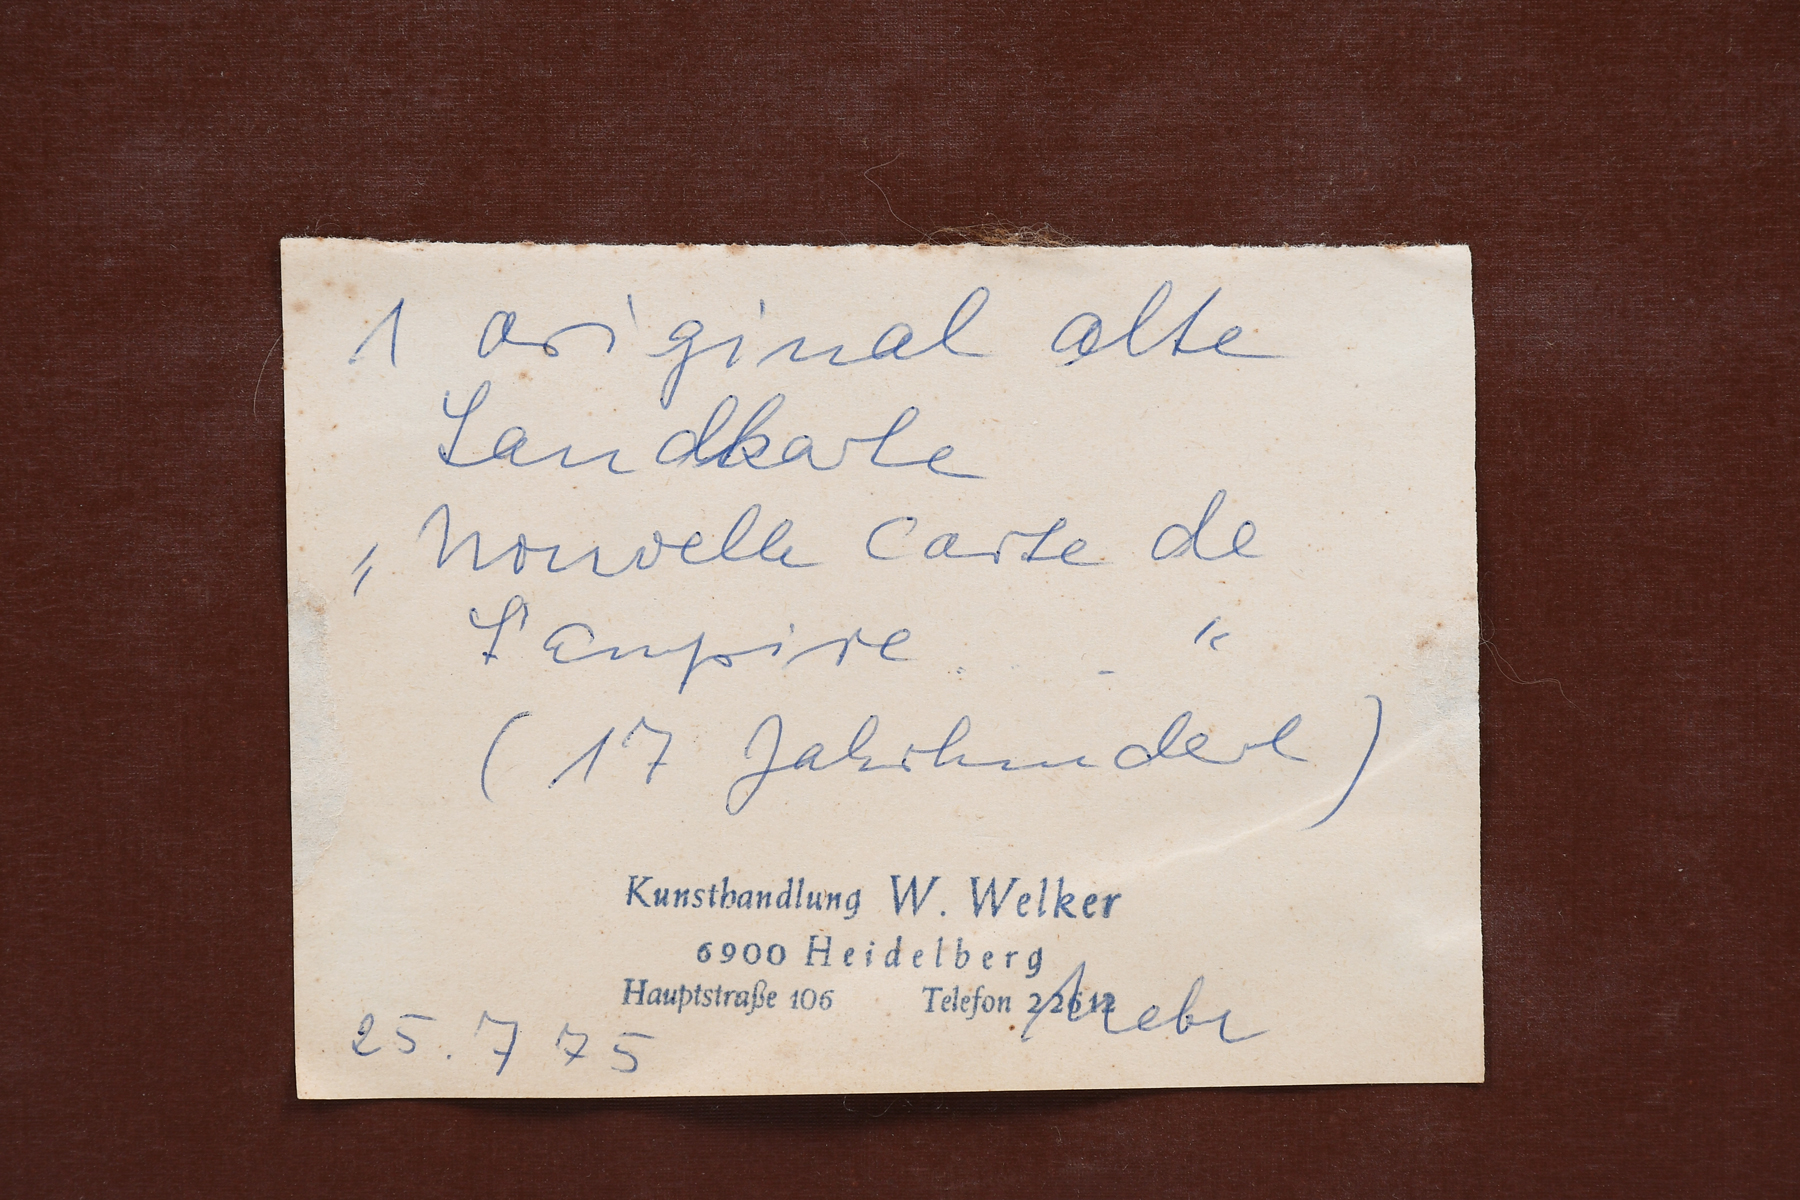 1 original alte
Landkarte
„Nouvelle Carte de
L'Empire . . . "
(17 Jahrhundert)
Kunsthandlung W. Welker
6900 Heidelberg
Hauptstraße 106 Telefon 22612
25.7 75